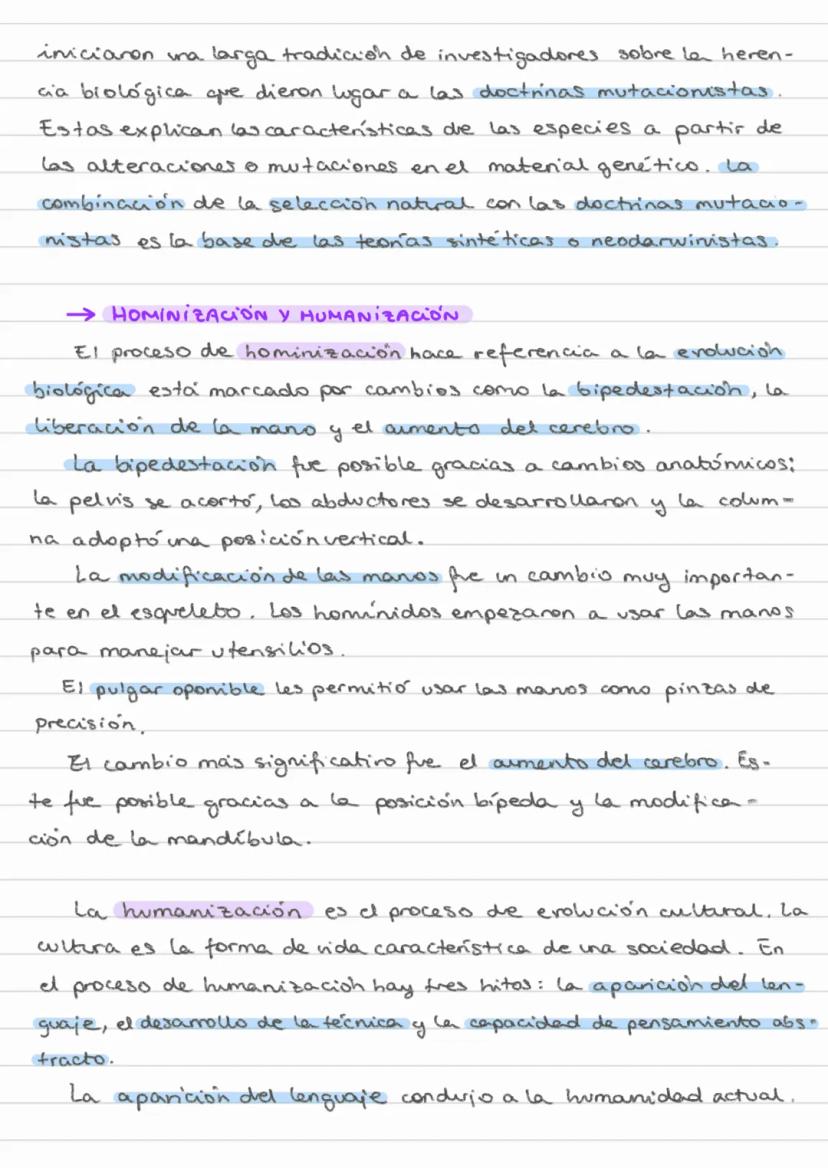 iniciaron una larga tradición de investigadores sobre la heren-
cia biológica que dieron lugar a las doctrinas mutacionistas.
Estas explican las características de las especies a partir de
las alteraciones o mutaciones en el material genético. La
combinación de la selección natural con las doctrinas mutacio-
nistas es la base de las teorías sintéticas o neodarwinistas.
→ HOMINIZACIÓN Y HUMANIZACIÓN
El proceso de hominización hace referencia a la evolución
biológica está marcado por cambios como la bipedestación, la
liberación de la mano y el aumento del cerebro.
La bipedestación fue posible gracias a cambios anatómicos:
la pelvis se acortó, los abductores se desarrollaron y la colum-
na adoptó una posición vertical.
La modificación de las manos fue un cambio muy importan-
te en el esqueleto. Los homínidos empezaron a usar las manos
para manejar utensilios.
El pulgar oponible les permitió usar las manos como pinzas de
precisión.
El cambio más significativo fue el aumento del cerebro. Es-
te fue posible gracias a la posición bípeda y la modifica-
ción de la mandíbula.
La humanización es el proceso de evolución cultural. La
cultura es la forma de vida característica de una sociedad. En
el proceso de humanización hay tres hitos: la aparición del len-
guaje, el desarrollo de la técnica y la capacidad de pensamiento abs-
tracto.
La aparición del lenguaje condujo a la humanidad actual.